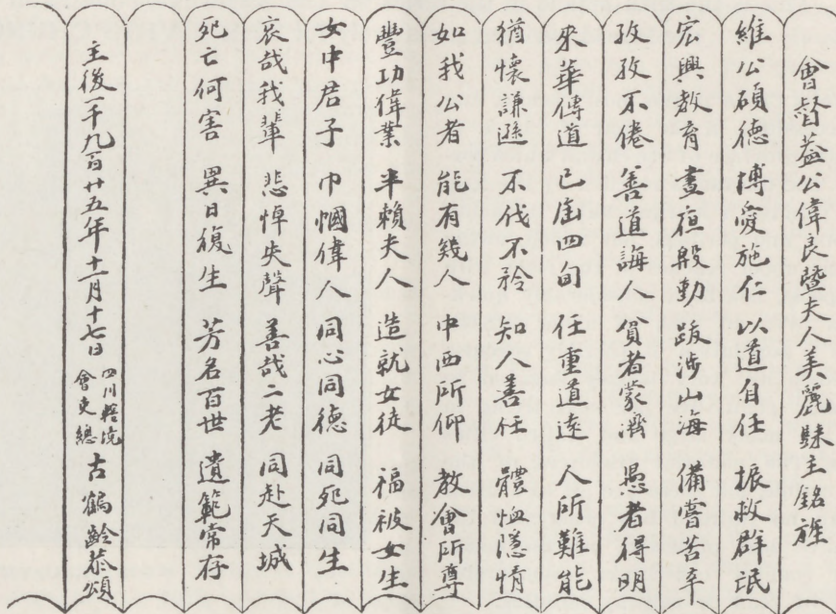 會督葢公偉良暨夫人美麗縣主銘旌
維公碩德 博愛施仁 以道自任 振救群氓
宏興教育 晝夜殷勤 跋涉山海 備嘗苦辛
孜孜不倦 善道誨人 貧者蒙濟 愚者得明
來華傳道 已屆四旬 任重道遠 人所難能
猶懷謙遜 不伐不矜 知人善任 體恤隱情
如我公者 能有幾人 中西所仰 教會所尊
豐功偉業 半賴夫人 造就女徒 福被女生
女中君子 巾幗偉人 同心同德 同死同生
哀哉我輩 悲悼失聲 善哉二老 同赴天城
死亡何害 異日復生 芳名百世 遺範常存
主後一千九百廿五年十一月十七日 四川轄境會吏總 古鶴齡恭頌